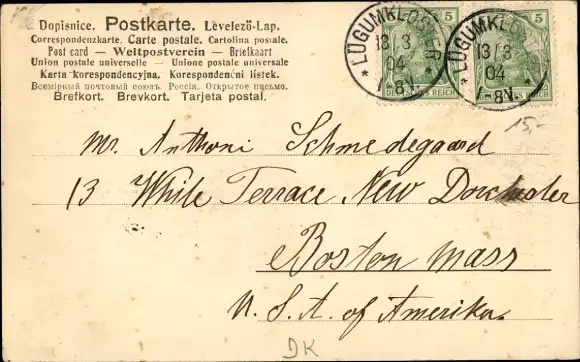 Dopisnice. Postkarte. Levelező-Lap.
Correspondenzkarte. Carte postale. Cartolina postale.
Post card — Weltpostverein — Briefkaart
Union postale universelle — Unione postale universale
Karta korespondencyjna. Korespondenční lístek.
Всемірный почтовый союзъ. Россія. Открытое письмо.
Brefkort. Brevkort. Tarjeta postal.
5
DEUTSCHES REICH
5
DEUTSCHES REICH
* LÜGUMKLOSTER *
13/3
04
7-8V.
* LÜGUMKLOSTER *
13/3
04
7-8V.
15,-
Mr. Anthoni Schmedegaard
13 While Terrace New Dorchester
Boston Mass
U. S. A. of Amerika.
DK